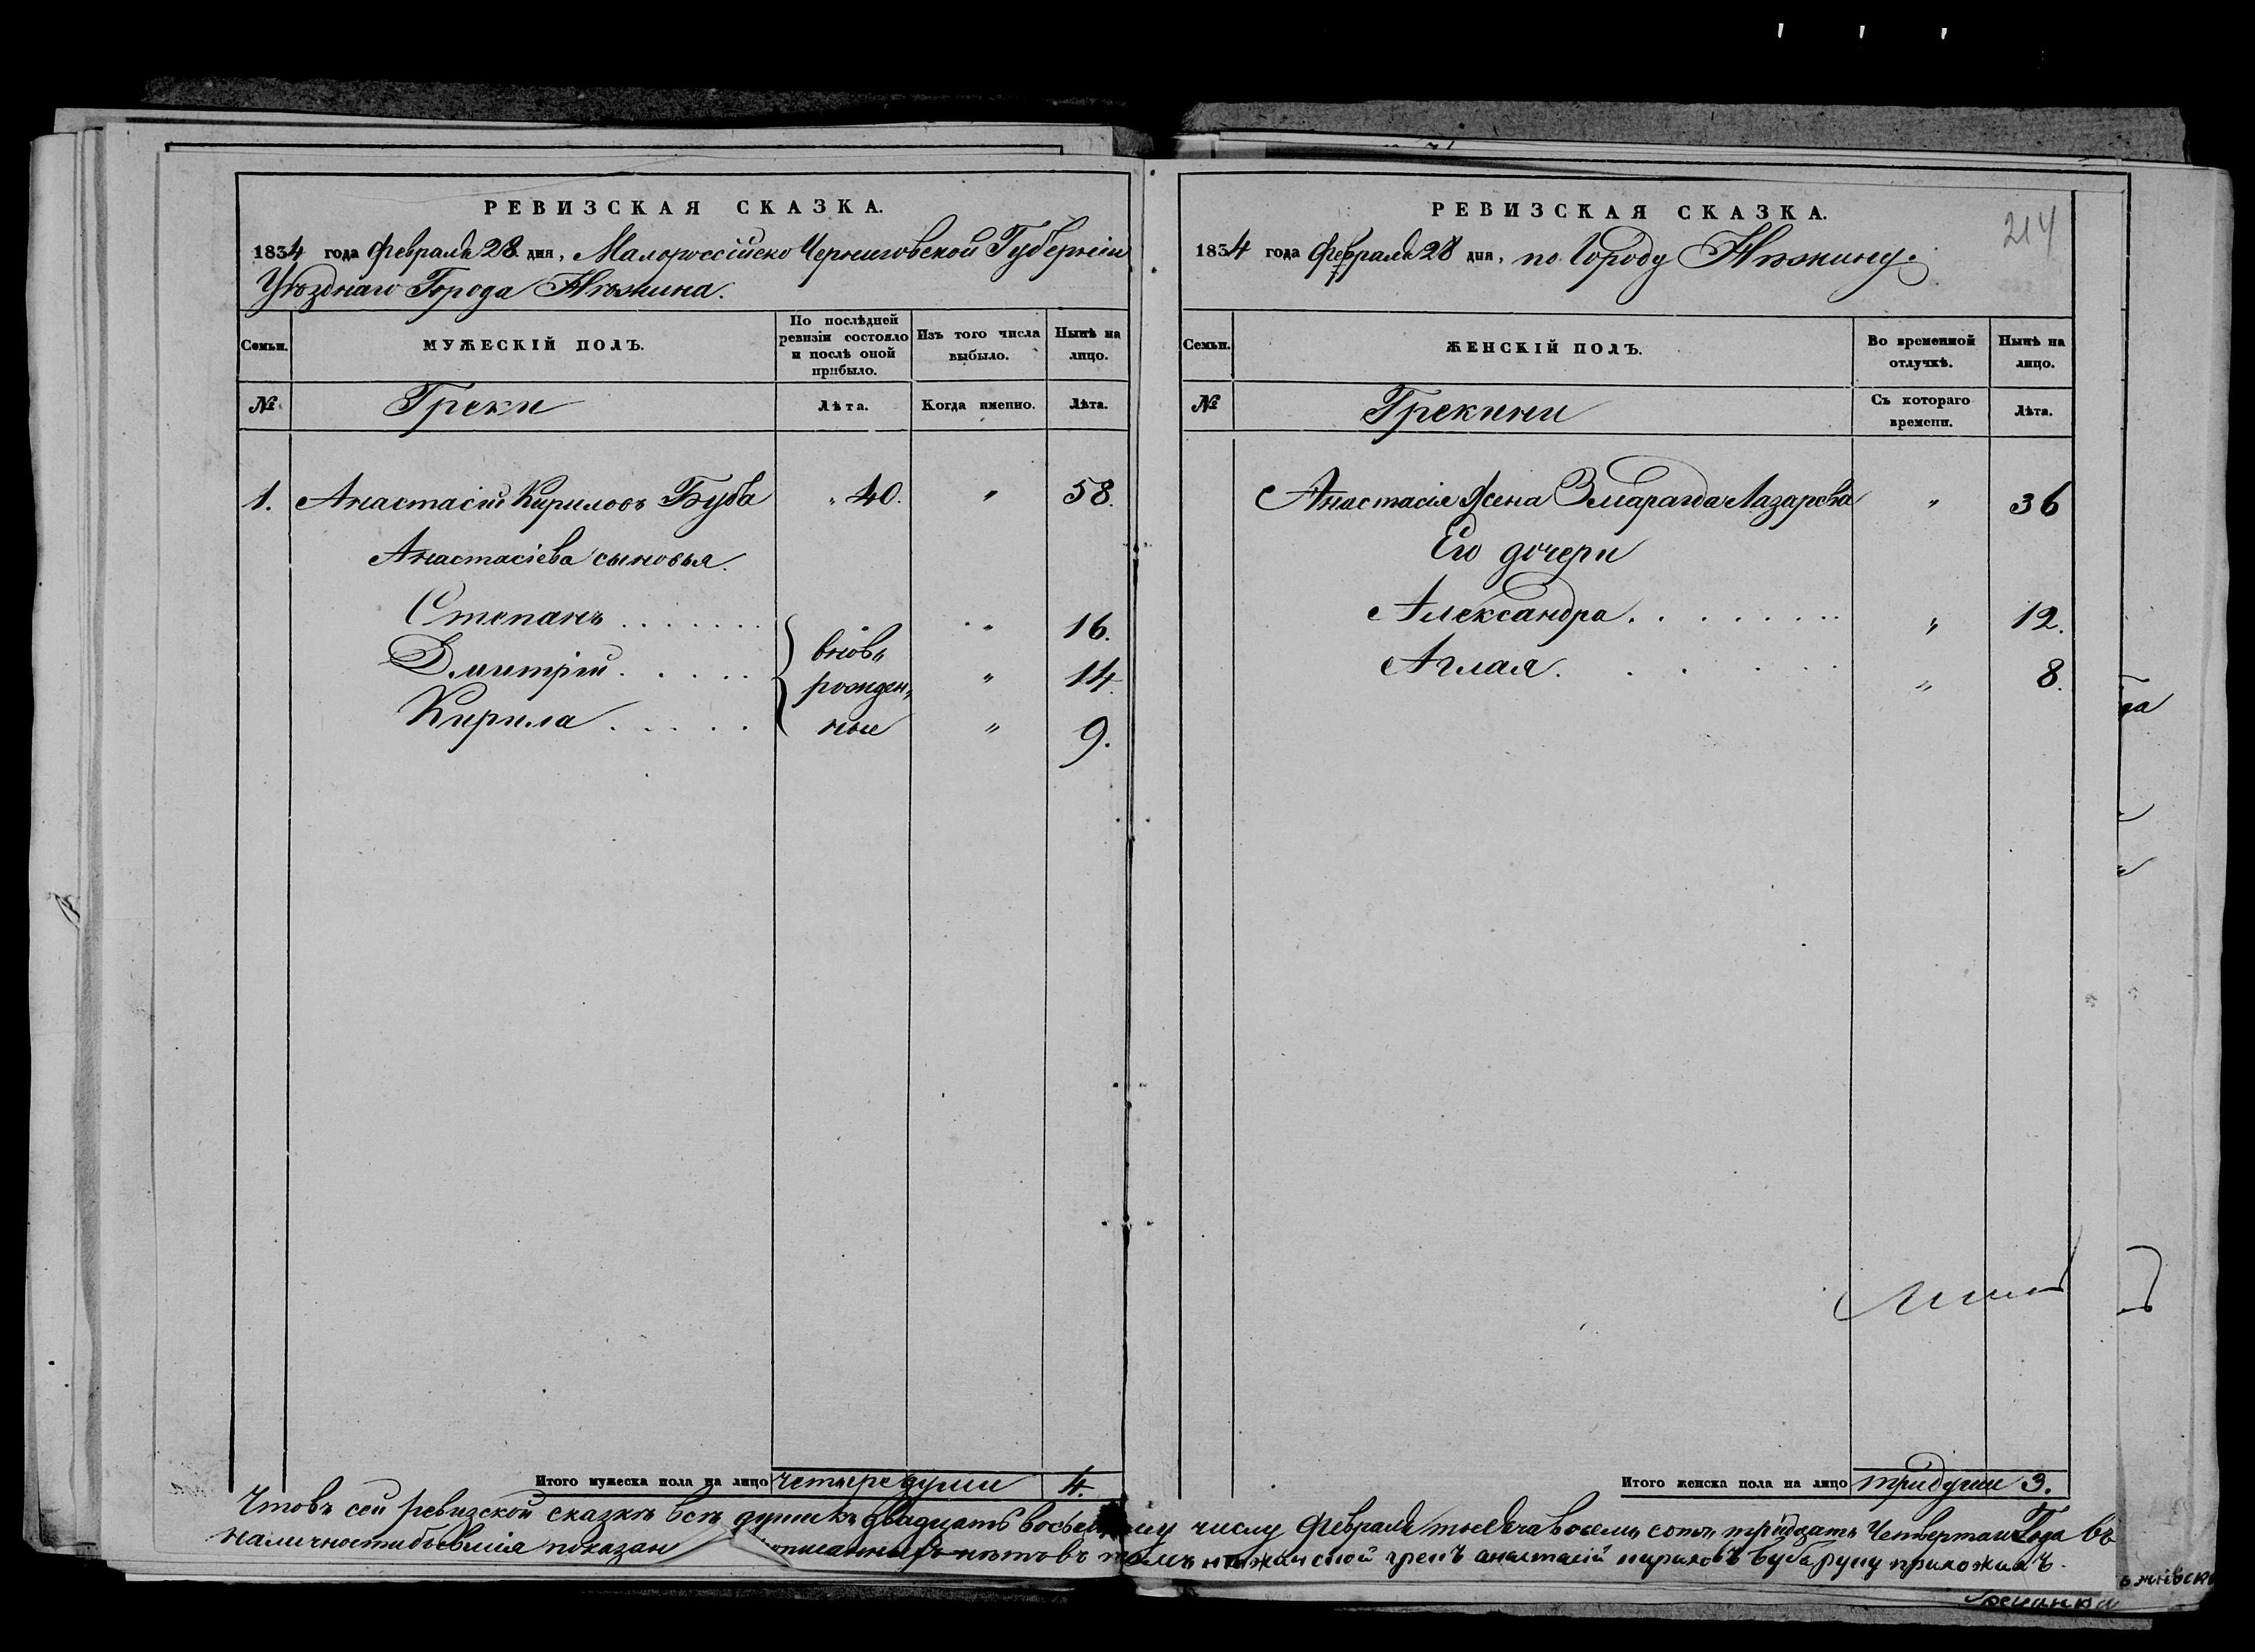 РЕВИЗСКАЯ СКАЗКА.
1834 года Февраля 28 дня, Малороссійско Черниговской Губерніи
Уѣзднаго Города Нѣжина.
Семьи.
МУЖЕСКІЙ ПОЛЪ.
По послѣдней ревизіи состояло и послѣ оной прибыло.
Изъ того числа выбыло.
Нынѣ на лицо.
№
Греки
Лѣта.
Когда именно.
Лѣта.
1. Анастасій Кириловъ Буба " 40. " 58.
Анастасіева сыновья.
Степанъ . . . . . . . " 16.
вновь
Дмитрій . . . . . " 14.
рожден,
Кирила . . . . . " 9.
ные
Итого мужеска пола на лицо четыре души 4.
РЕВИЗСКАЯ СКАЗКА.
214
1834 года Февраля 28 дня, по Городу Нѣжину.
Семьи.
ЖЕНСКІЙ ПОЛЪ.
Во временной отлучкѣ.
Нынѣ на лицо.
№
Грекини
Съ котораго времени.
Лѣта.
Анастасія Жена Змарагда Лазарева " 36
Его дочери
Александра . . . . . . . . " 12.
Аглая . . . . . " 8.
Итого женска пола на лицо три души 3.
Что въ сей ревизской сказкѣ всѣ души къ двадцать восьмому числу Февраля тысяча восемь сотъ тридцать Четвертаго Года въ
наличности бывшія показан нѣтъ въ томъ нѣжинской грекъ анастасій кириловъ буба руку приложилъ.